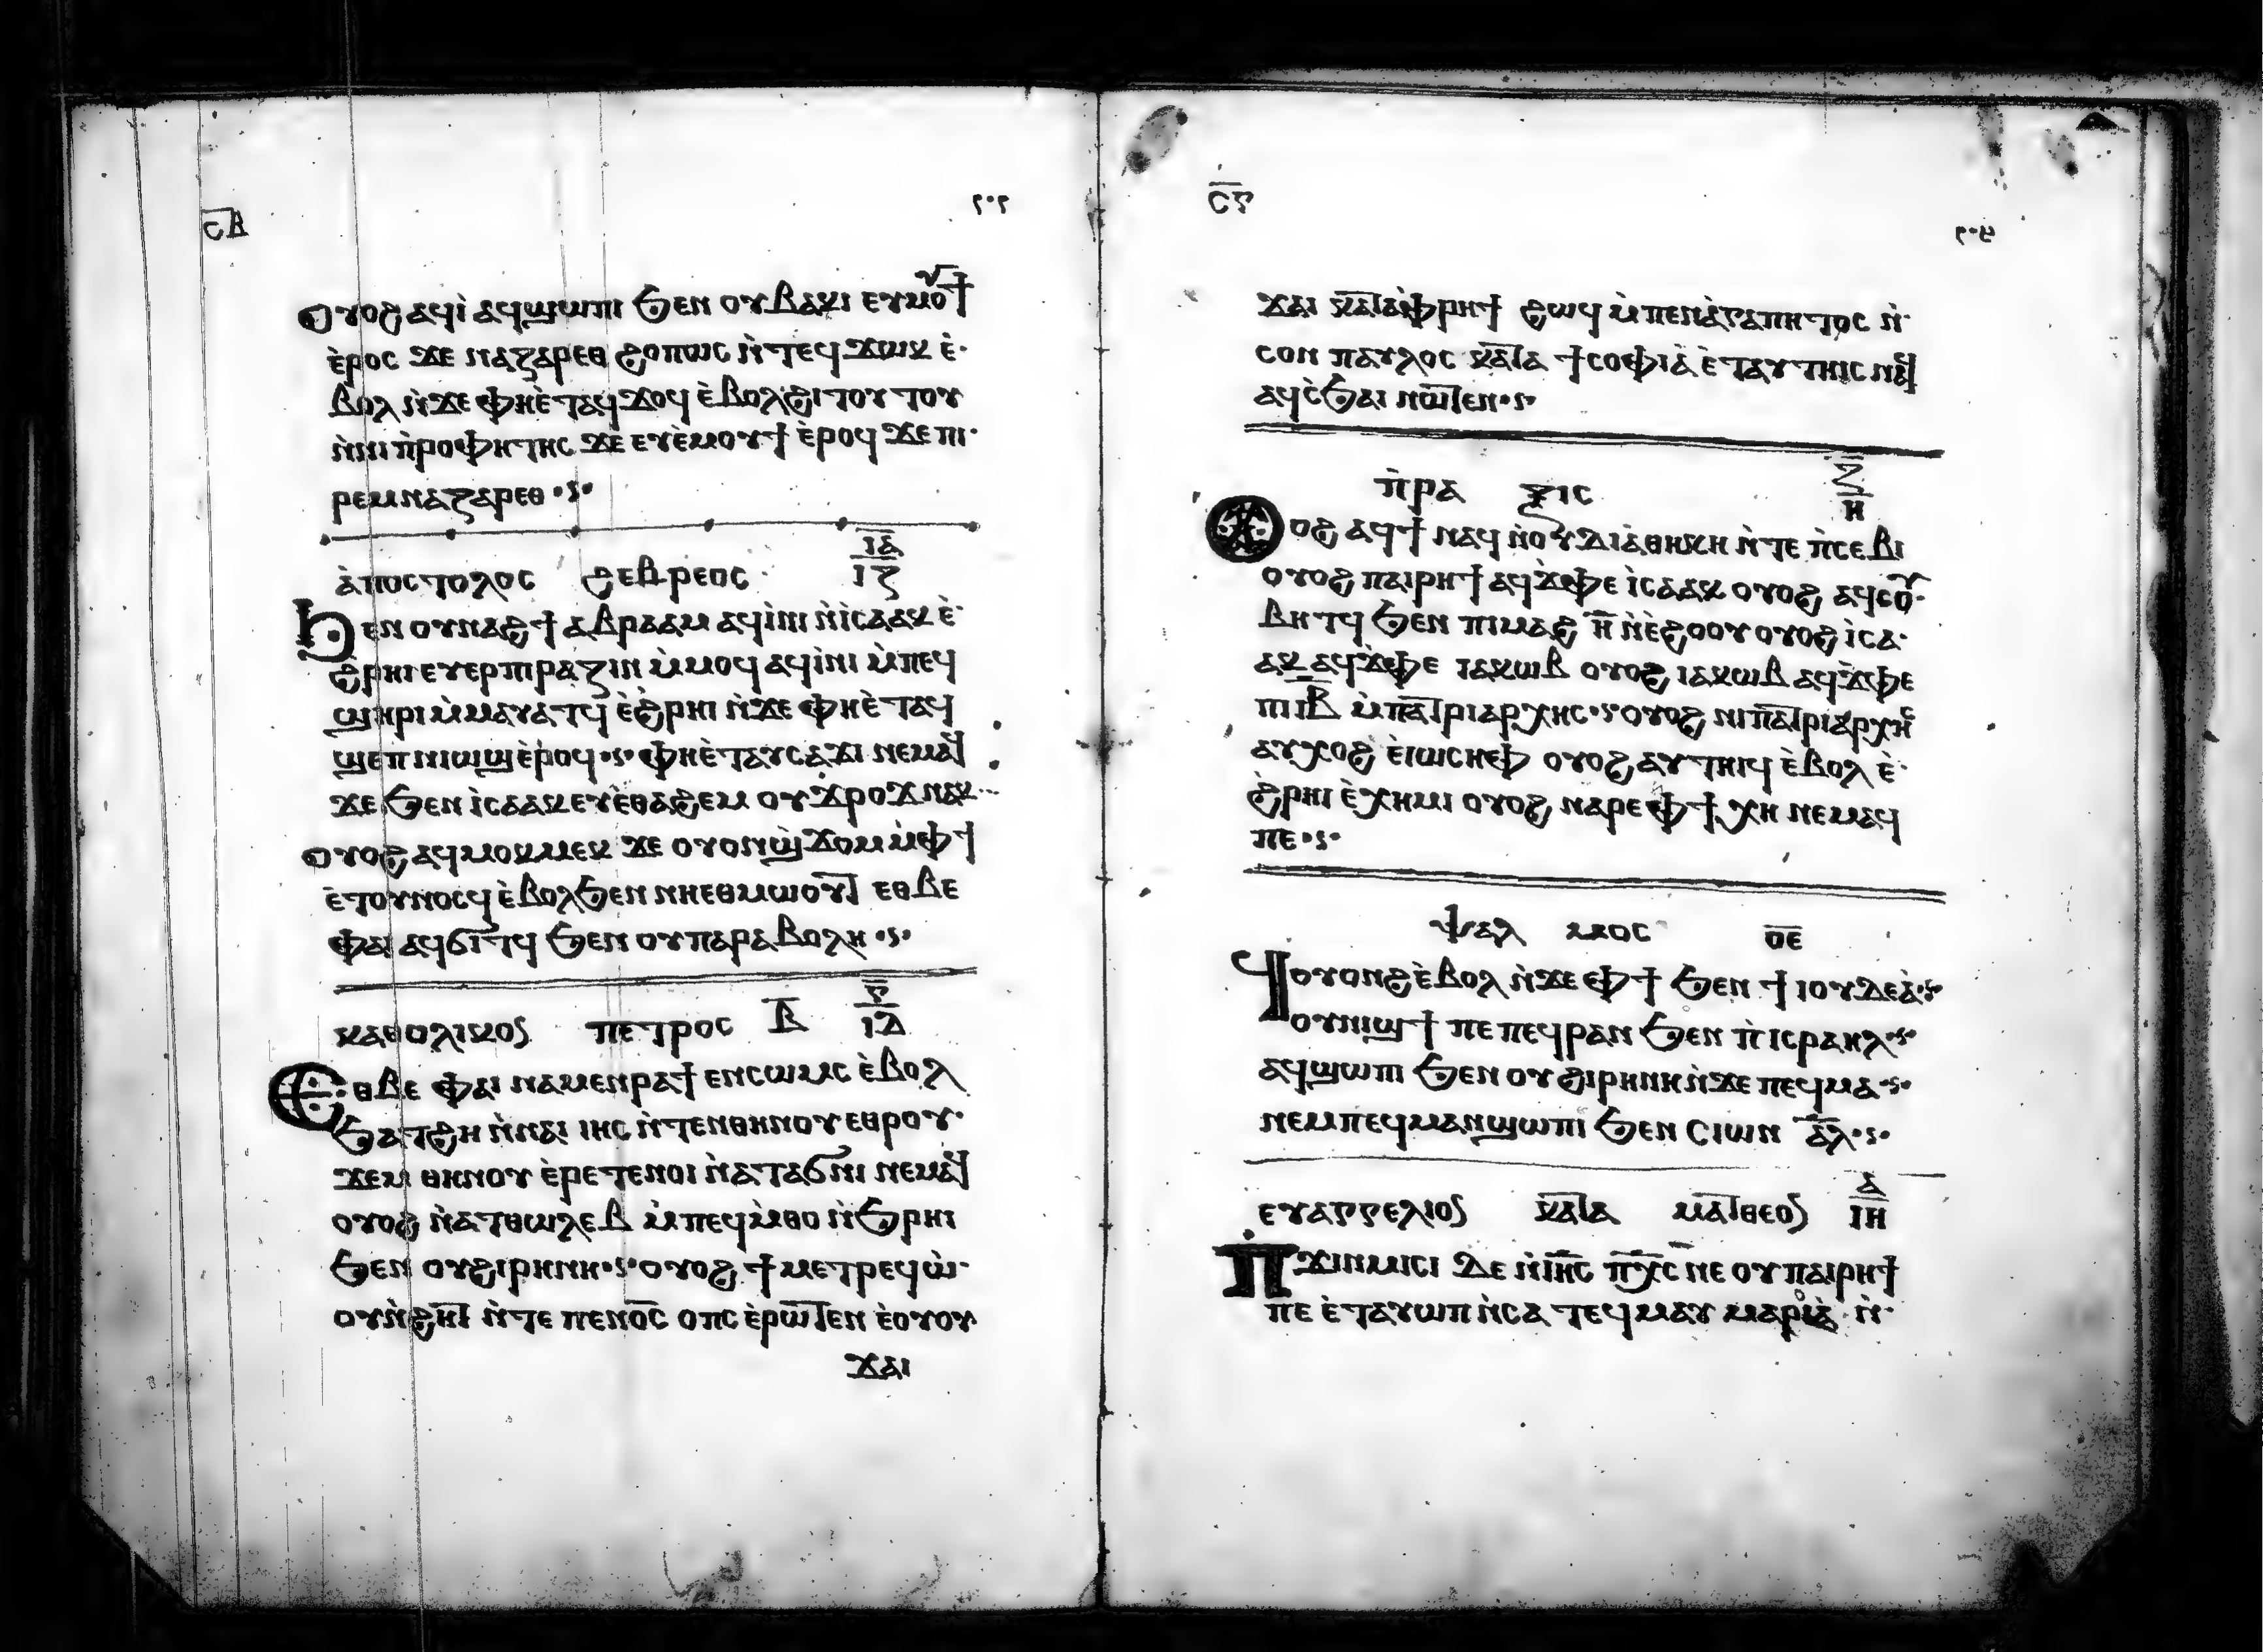 ⲥⲃ̅
ⲟⲩⲟϩ ⲁϥⲓ̀ ⲁϥϣⲱⲡⲓ ϧⲉⲛ ⲟⲩⲃⲁⲕⲓ ⲉⲩⲙⲟⲩϯ
ⲉ̀ⲣⲟⲥ ϫⲉ ⲛⲁⲍⲁⲣⲉⲑ ϩⲟⲡⲱⲥ ⲛ̀ⲧⲉϥϫⲱⲕ ⲉ̀
ⲃⲟⲗ ⲛ̀ϫⲉ ⲫⲏⲉ̀ⲧⲁϥϫⲟϥ ⲉ̀ⲃⲟⲗϩⲓⲧⲟⲩⲧⲟⲩ
ⲛ̀ⲛⲓⲡ̀ⲣⲟⲫⲏⲧⲏⲥ ϫⲉ ⲉⲩⲉ̀ⲙⲟⲩϯ ⲉ̀ⲣⲟϥ ϫⲉ ⲡⲓ
ⲣⲉⲙⲛⲁⲍⲁⲣⲉⲑ
ⲁ̀ⲡⲟⲥⲧⲟⲗⲟⲥ ϩⲉⲃⲣⲉⲟⲥ ⲓⲁ̅ ⲓⲍ
ϧⲉⲛ ⲟⲩⲛⲁϩϯ ⲁⲃⲣⲁⲁⲙ ⲁϥⲓ̀ⲛⲓ ⲛ̀ⲓⲥⲁⲁⲕ ⲉ̀
ϩ̀ⲣⲏⲓ ⲉⲩⲉⲣⲡⲓⲣⲁⲍⲓⲛ ⲙ̀ⲙⲟϥ ⲁϥⲓ̀ⲛⲓ ⲙ̀ⲡⲉϥ
ϣⲏⲣⲓ ⲙ̀ⲙⲁⲩⲁⲧϥ ⲉ̀ϩ̀ⲣⲏⲓ ⲛ̀ϫⲉ ⲫⲏⲉ̀ⲧⲁϥ
ϣⲉⲡ ⲛⲓⲱϣ ⲉ̀ⲣⲟϥ ⲫⲏⲉ̀ⲧⲁⲩⲥⲁϫⲓ ⲛⲉⲙⲁϥ
ϫⲉ ϧⲉⲛ ⲓ̀ⲥⲁⲁⲕ ⲉⲩⲉ̀ⲑⲁϩⲉⲙ ⲟⲩϫ̀ⲣⲟϫ ⲛⲁⲕ
ⲟⲩⲟϩ ⲁϥⲙⲟⲕⲙⲉⲕ ϫⲉ ⲟⲩⲟⲛϣ̀ϫⲟⲙ ⲙ̀ⲫϯ
ⲉ̀ⲧⲟⲩⲛⲟⲥϥ ⲉ̀ⲃⲟⲗϧⲉⲛ ⲛⲏⲉⲑⲙⲱⲟⲩⲧ ⲉⲑⲃⲉ
ⲫⲁⲓ ⲁϥϭⲓⲧϥ ϧⲉⲛ ⲟⲩⲡⲁⲣⲁⲃⲟⲗⲏ
ⲕⲁⲑⲟⲗⲓⲕⲟⲥ ⲡⲉⲧⲣⲟⲥ ⲃ̅ ⲅ̅ ⲓⲇ
ⲉⲑⲃⲉ ⲫⲁⲓ ⲛⲁⲙⲉⲛⲣⲁϯ ⲉⲛⲥⲱⲙⲥ ⲉ̀ⲃⲟⲗ
ϧⲁⲧϩⲏ ⲛ̀ⲛⲁⲓ ⲓⲏⲥ ⲛ̀ⲧⲉⲛⲑⲏⲛⲟⲩ ⲉⲑⲣⲟⲩ
ϫⲉⲙ ⲑⲏⲛⲟⲩ ⲉ̀ⲣⲉⲧⲉⲛⲟⲓ ⲛ̀ⲁⲧⲁϭⲛⲓ ⲛⲉⲙⲁϥ
ⲟⲩⲟϩ ⲛ̀ⲁⲧⲑⲱⲗⲉⲃ ⲙ̀ⲡⲉϥⲙ̀ⲑⲟ ⲛ̀ϧⲣⲏⲓ
ϧⲉⲛ ⲟⲩϩⲓⲣⲏⲛⲏ ⲟⲩⲟϩ ϯⲙⲉⲧⲣⲉϥⲱ̀
ⲟⲩⲛ̀ϩⲏⲧ ⲛ̀ⲧⲉ ⲡⲉⲛⲟ̅ⲥ̅ ⲟⲡⲥ ⲉ̀ⲣⲱⲧⲉⲛ ⲉ̀ⲟⲩⲟⲩ
ϫⲁⲓ
ⲥⲅ̅
ϫⲁⲓ ⲕⲁⲧⲁⲫ̀ⲣⲏϯ ϩⲱϥ ⲙ̀ⲡⲉⲛⲁ̀ⲅⲁⲡⲏⲧⲟⲥ ⲛ̀
ⲥⲟⲛ ⲡⲁⲩⲗⲟⲥ ⲕⲁⲧⲁ ϯⲥⲟⲫⲓⲁ̀ ⲉ̀ⲧⲁⲩⲧⲏⲓⲥ ⲛⲁϥ
ⲁϥⲥ̀ϧⲁⲓ ⲛⲱⲧⲉⲛ
ⲡ̀ⲣⲁ ⲝⲓⲥ ⲍ̅ ⲏ
ⲟⲩⲟϩ ⲁϥϯ ⲛⲁϥ ⲛ̀ⲟⲩⲇⲓⲁ̀ⲑⲏⲕⲏ ⲛ̀ⲧⲉ ⲡ̀ⲥⲉⲃⲓ
ⲟⲩⲟϩ ⲡⲁⲓⲣⲏϯ ⲁϥϫ̀ⲫⲉ ⲓ̀ⲥⲁⲁⲕ ⲟⲩⲟϩ ⲁϥⲥⲟⲩ
ⲃⲏⲧϥ ϧⲉⲛ ⲡⲓⲙⲁϩ ⲏ̅ ⲛ̀ⲉ̀ϩⲟⲟⲩ ⲟⲩⲟϩ ⲓ̀ⲥⲁ
ⲁⲕ ⲁϥϫ̀ⲫⲉ ⲓⲁⲕⲱⲃ ⲟⲩⲟϩ ⲓⲁⲕⲱⲃ ⲁϥϫ̀ⲫⲉ
ⲡⲓⲓ̅ⲃ̅ ⲙ̀ⲡⲁⲧⲣⲓⲁⲣⲭⲏⲥ ⲟⲩⲟϩ ⲛⲓⲡⲁⲧⲣⲓⲁⲣⲭⲏⲥ
ⲁⲩⲭⲟϩ ⲉ̀ⲓⲱⲥⲏⲫ ⲟⲩⲟϩ ⲁⲩⲧⲏⲓϥ ⲉ̀ⲃⲟⲗ ⲉ̀
ϩ̀ⲣⲏⲓ ⲉ̀ⲭⲏⲙⲓ ⲟⲩⲟϩ ⲛⲁⲣⲉ ⲫϯ ⲭⲏ ⲛⲉⲙⲁϥ
ⲡⲉ
ⲯⲁⲗ ⲙⲟⲥ ⲟⲉ̅
ϥⲟⲩⲟⲛϩ ⲉ̀ⲃⲟⲗ ⲛ̀ϫⲉ ⲫϯ ϧⲉⲛ ϯⲓⲟⲩⲇⲉⲁ̀
ⲟⲩⲛⲓϣϯ ⲡⲉ ⲡⲉϥⲣⲁⲛ ϧⲉⲛ ⲡ̀ⲓⲥⲣⲁⲏⲗ
ⲁϥϣⲱⲡⲓ ϧⲉⲛ ⲟⲩϩⲓⲣⲏⲛⲏ ⲛ̀ϫⲉ ⲡⲉϥⲙⲁ
ⲛⲉⲙ ⲡⲉϥⲙⲁⲛϣⲱⲡⲓ ϧⲉⲛ ⲥⲓⲱⲛ ⲁ̅ⲗ̅
ⲉⲩⲁⲅⲅⲉⲗⲓⲟⲥ ⲕⲁⲧⲁ ⲙⲁⲧⲑⲉⲟⲥ ⲁ̅ ⲓⲏ
ⲡ̀ϫⲓⲛⲙⲓⲥⲓ ⲇⲉ ⲛ̀ⲓ̅ⲏ̅ⲥ̅ ⲡ̅ⲭ̅ⲥ̅ ⲛⲉ ⲟⲩⲡⲁⲓⲣⲏϯ
ⲡⲉ ⲉ̀ⲧⲁⲩⲱⲡ ⲛ̀ⲥⲁ ⲧⲉϥⲙⲁⲩ ⲙⲁⲣⲓⲁ̀ ⲛ̀